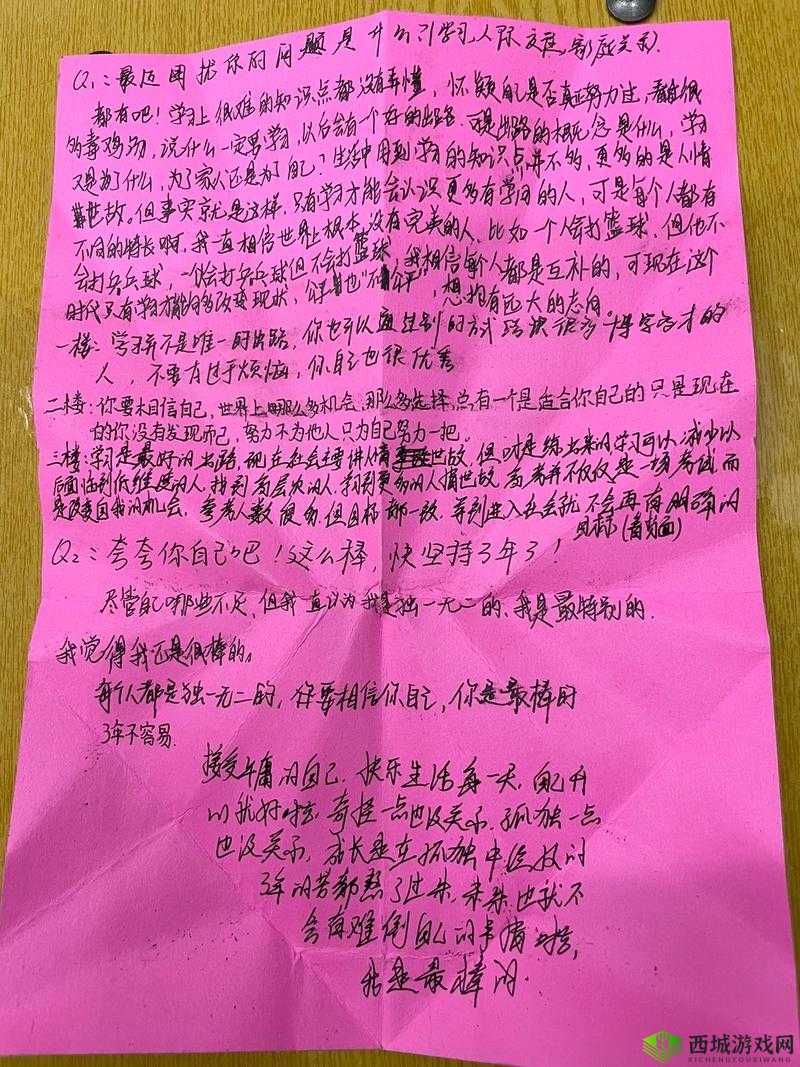 Q1：最近困扰你的问题是什么？学习，人际交往，家庭关系？
都有吧！学习上很难的知识点都没有弄懂，怀疑自己是否真正努力过，看过很
多毒鸡汤，说什么一定要学习，以后会有一个好的出路，可是出路的概念是什么，学习
又是为了什么，为了家人还是为了自己？生活中用到学习的知识点并不多，更多的是人情
世故。但事实就是这样，只有学习才能会认识更多有学问的人，可是每个人都有
不同的特长啊，我一直相信世界上根本没有完美的人，比如一个人会打篮球，但他不
会打乒乓球，一个会打乒乓球但不会打篮球，我相信每个人都是互补的，可现在这个
时代只有学习才能改变现状，公平也"不公平"，想拥有远大的志向。
一楼：学习并不是唯一的出路，你也可以通过别的方式结识很多"博学多才的
人，不要有过于烦恼，你自己也很优秀
二楼：你要相信自己，世界上哪么多机会，那么多选择，总有一个是适合你自己的只是现在
的你没有发现而已，努力不为他人只为自己努力一把。
三楼：学习是最好的出路，现在社会主要讲人情世故，但 是练出来的学习可以减少以
后面临到低维度的人，找到高层次的人，学到更多的人情世故，高考并不仅仅是一场考试，而
是改变自我的机会，参考人数很多，但目标都一致，等到进入社会就不会再有明确的
目标（看背面）
Q2：夸夸你自己吧！这么棒，快坚持了3年了！
尽管自己哪些不足，但我一直认为我是独一无二的，我是最特别的。
我觉得我还是很棒的。
每个人都是独一无二的，你要相信你自己，你是最棒的
3年不容易
接受平庸的自己，快乐生活每一天，自己开
心就好啦，奇怪一点也没关系，孤独一点
也没关系，成长是在孤独中绽放的
3年的苦都熬了过来，未来也就不
会有难倒自己的事情啦，
我是最棒的。
西城游戏网
XICHENGYOUXIWANG